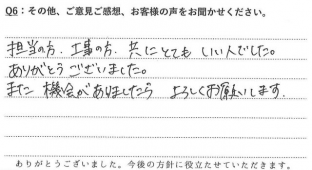 Q6：その他、ご意見ご感想、お客様の声をお聞かせください。
担当の方、工事の方、共にとても いい人でした。
ありがとうございました。
また 機会がありましたら よろしくお願いします。
ありがとうございました。今後の方針に役立たせていただきます。